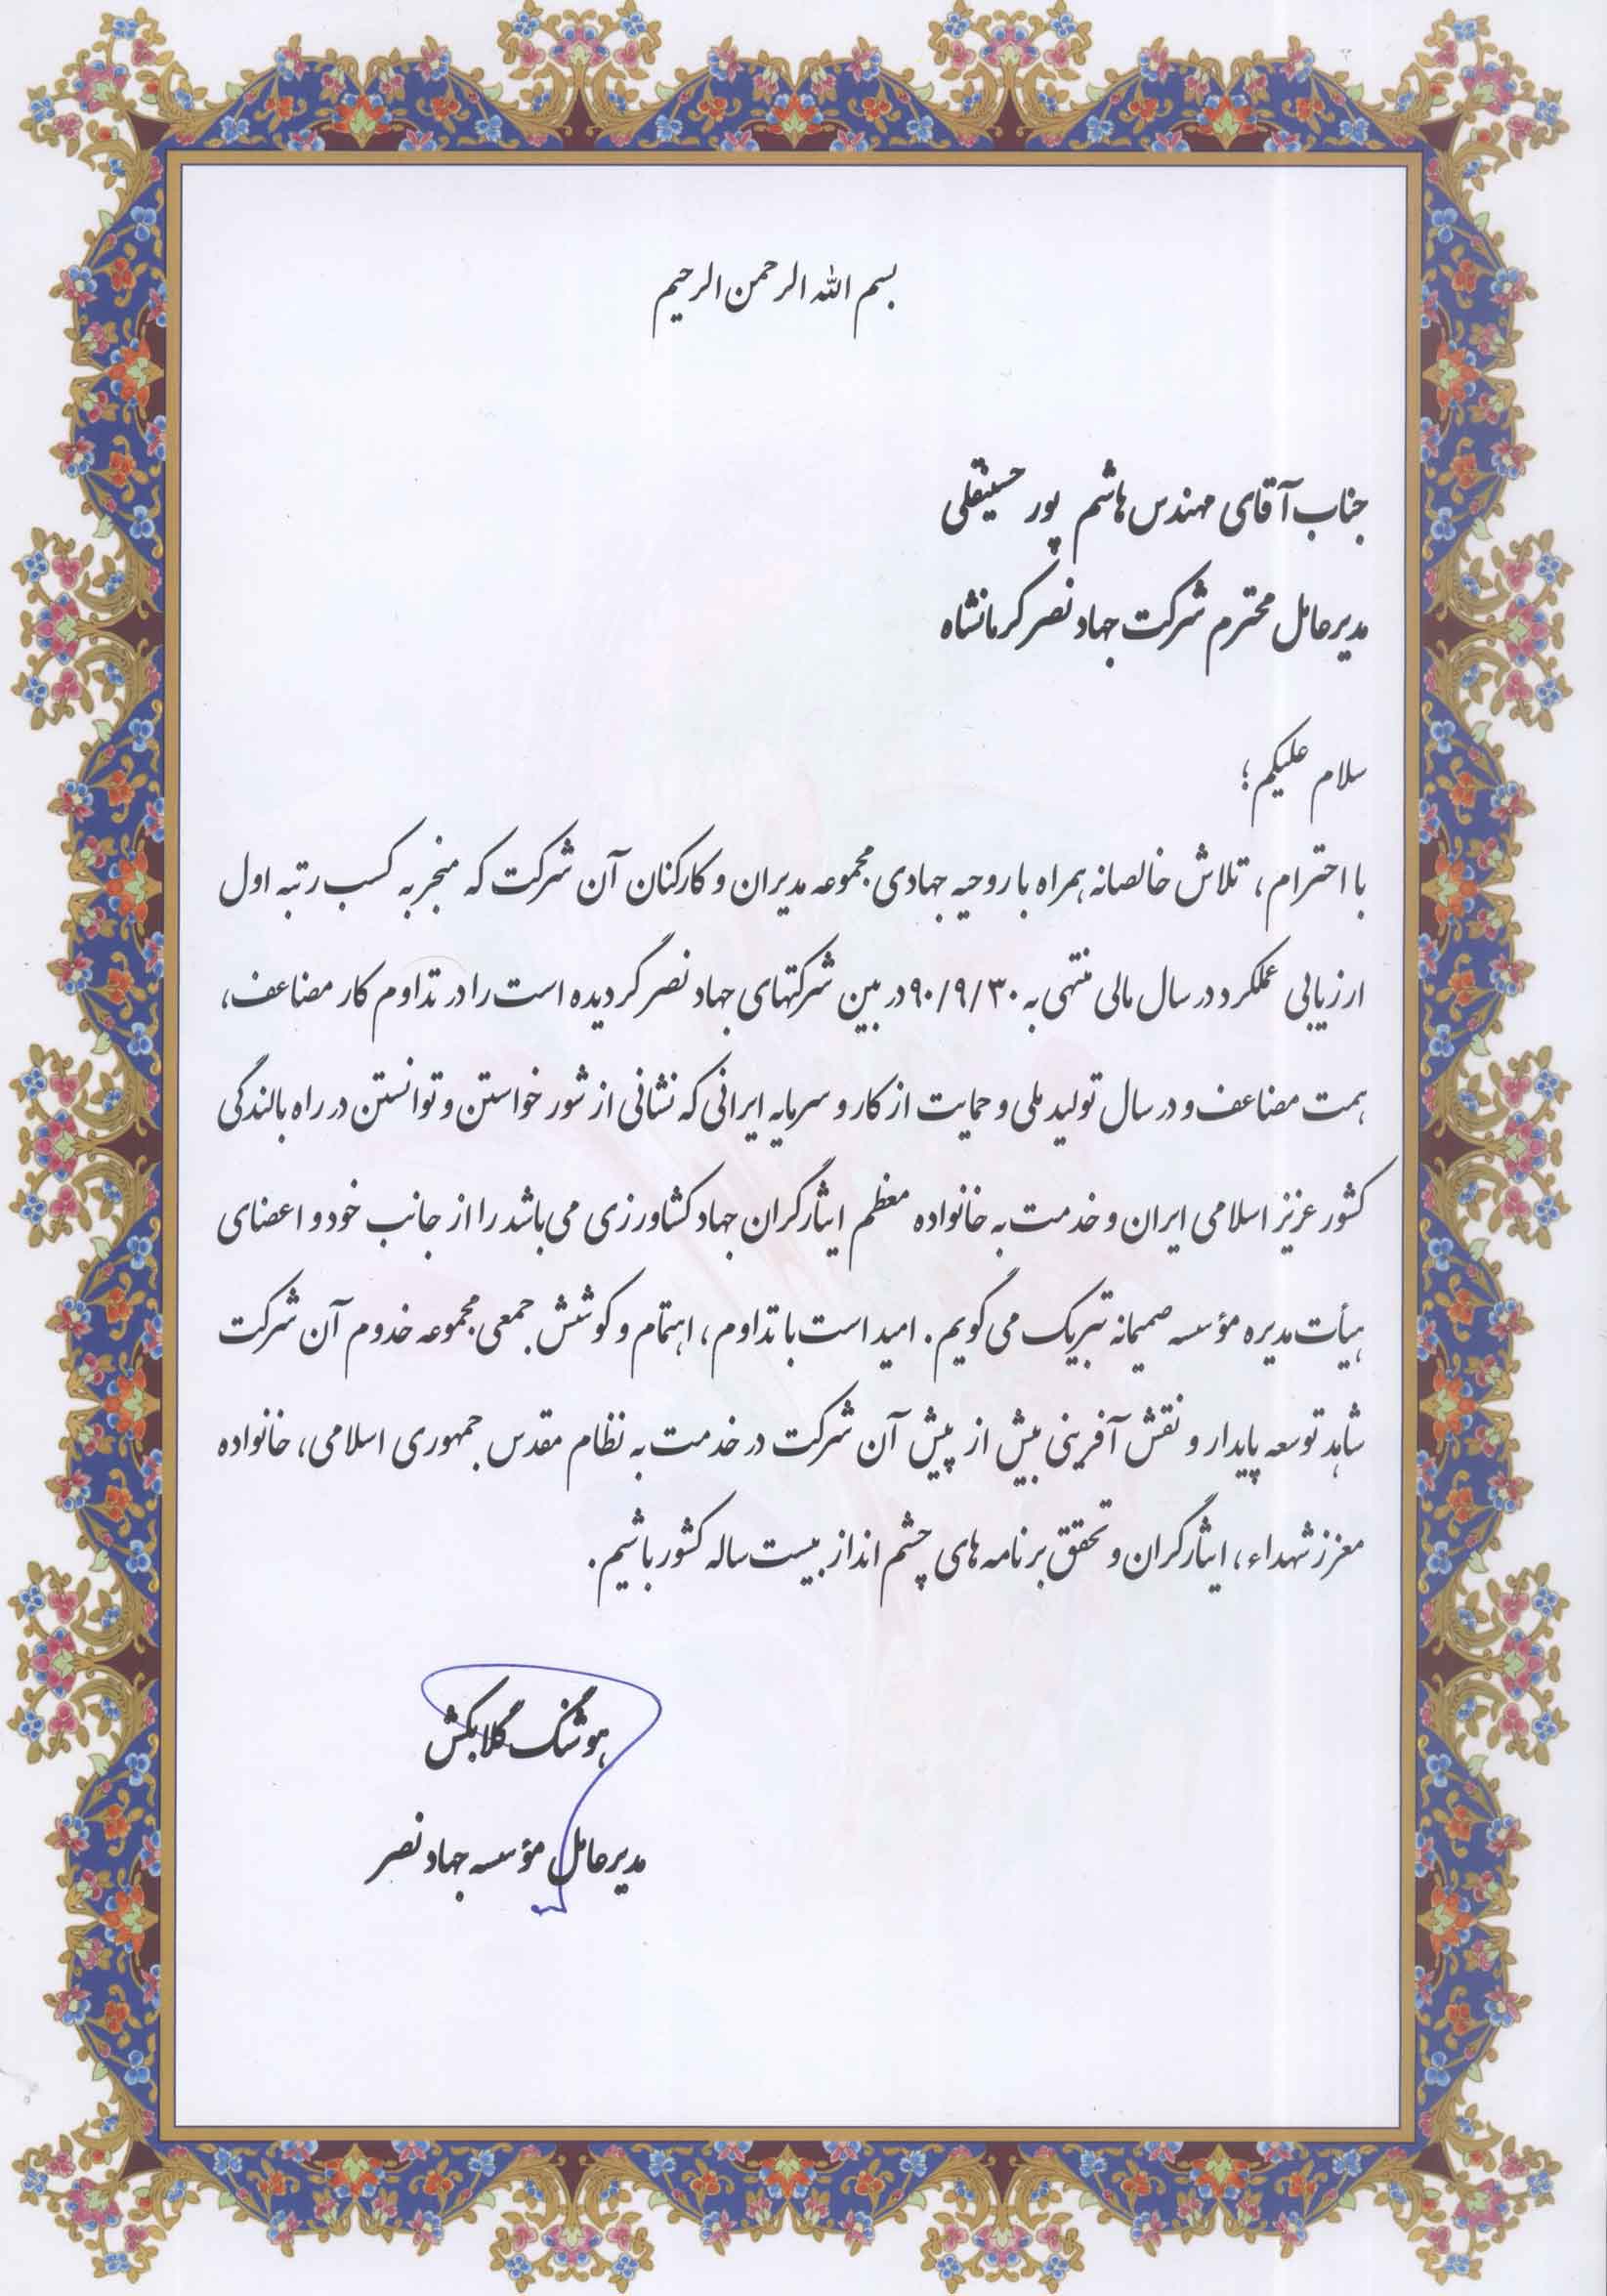 بسم الله الرحمن الرحیم
جناب آقای مهندس هاشم پور حسینقلی
مدیرعامل محترم شرکت جهاد نصر کرمانشاه
سلام علیکم؛
با احترام، تلاش خالصانه همراه با روحیه جهادی مجموعه مدیران و کارکنان آن شرکت که منجر به کسب رتبه اول
ارزیابی عملکرد در سال مالی منتهی به ۹۰/۹/۳۰ در بین شرکتهای جهاد نصر گردیده است را در تداوم کار مضاعف،
همت مضاعف و در سال تولید ملی و حمایت از کار و سرمایه ایرانی که نشانی از شور خواستن و توانستن در راه بالندگی
کشور عزیز اسلامی ایران و خدمت به خانواده معظم ایثارگران جهاد کشاورزی می باشد را از جانب خود و اعضای
هیأت مدیره مؤسسه صمیمانه تبریک می گویم. امید است با تداوم، اهتمام و کوشش جمعی مجموعه خدوم آن شرکت
شاهد توسعه پایدار و نقش آفرینی بیش از پیش آن شرکت در خدمت به نظام مقدس جمهوری اسلامی، خانواده
معزز شهداء، ایثارگران و تحقق برنامه های چشم انداز بیست ساله کشور باشیم.
هوشنگ گلابکش
مدیرعامل مؤسسه جهاد نصر